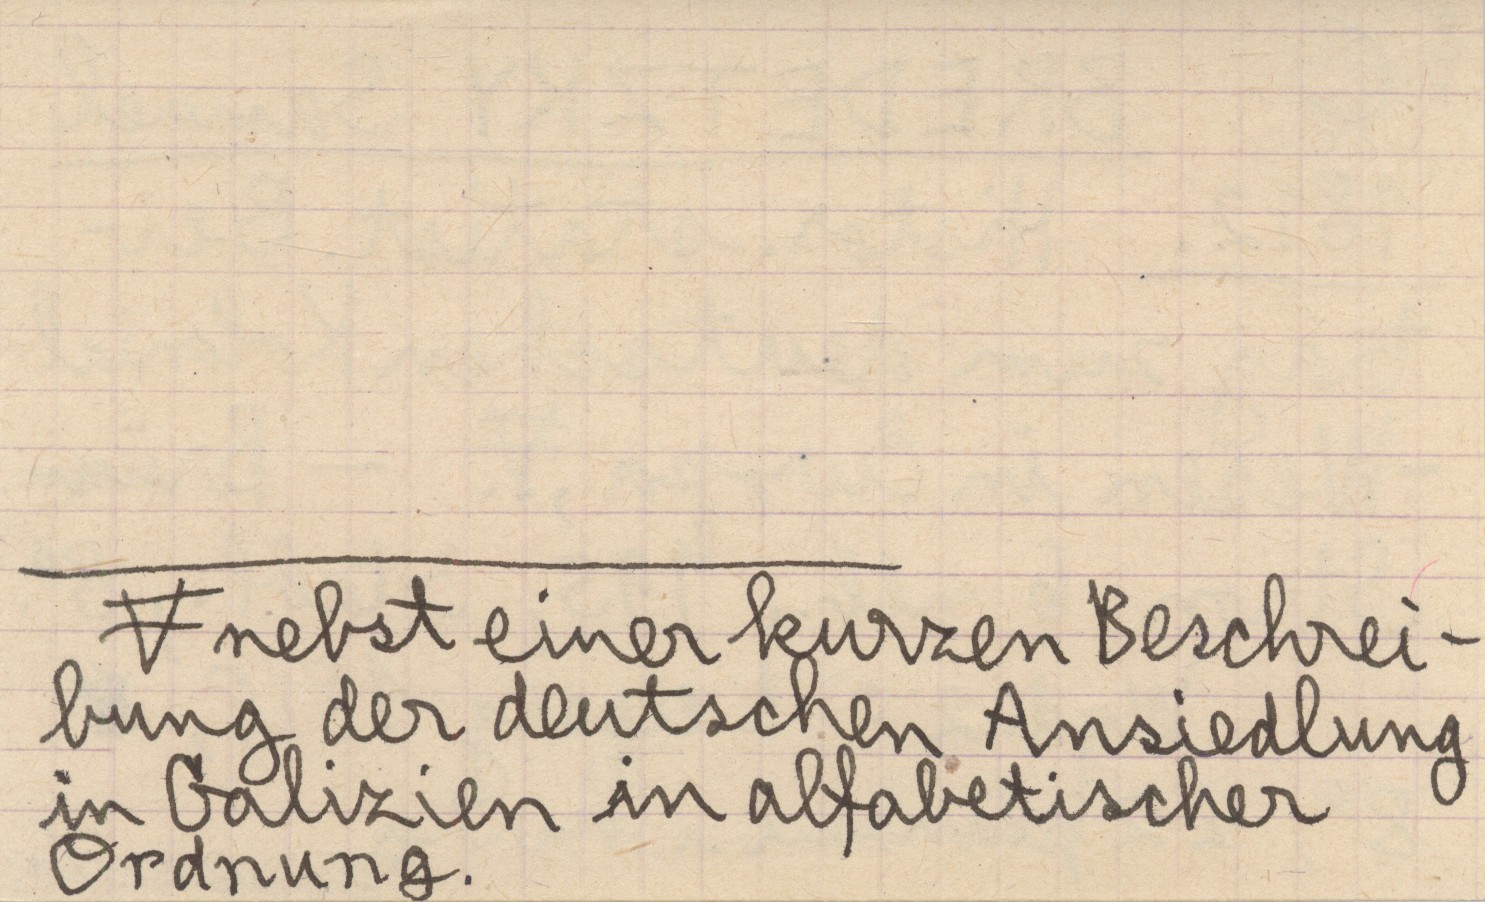 nebst einer kurzen Beschrei-
bung der deutschen Ansiedlung
in Galizien in alfabetischer
Ordnung.